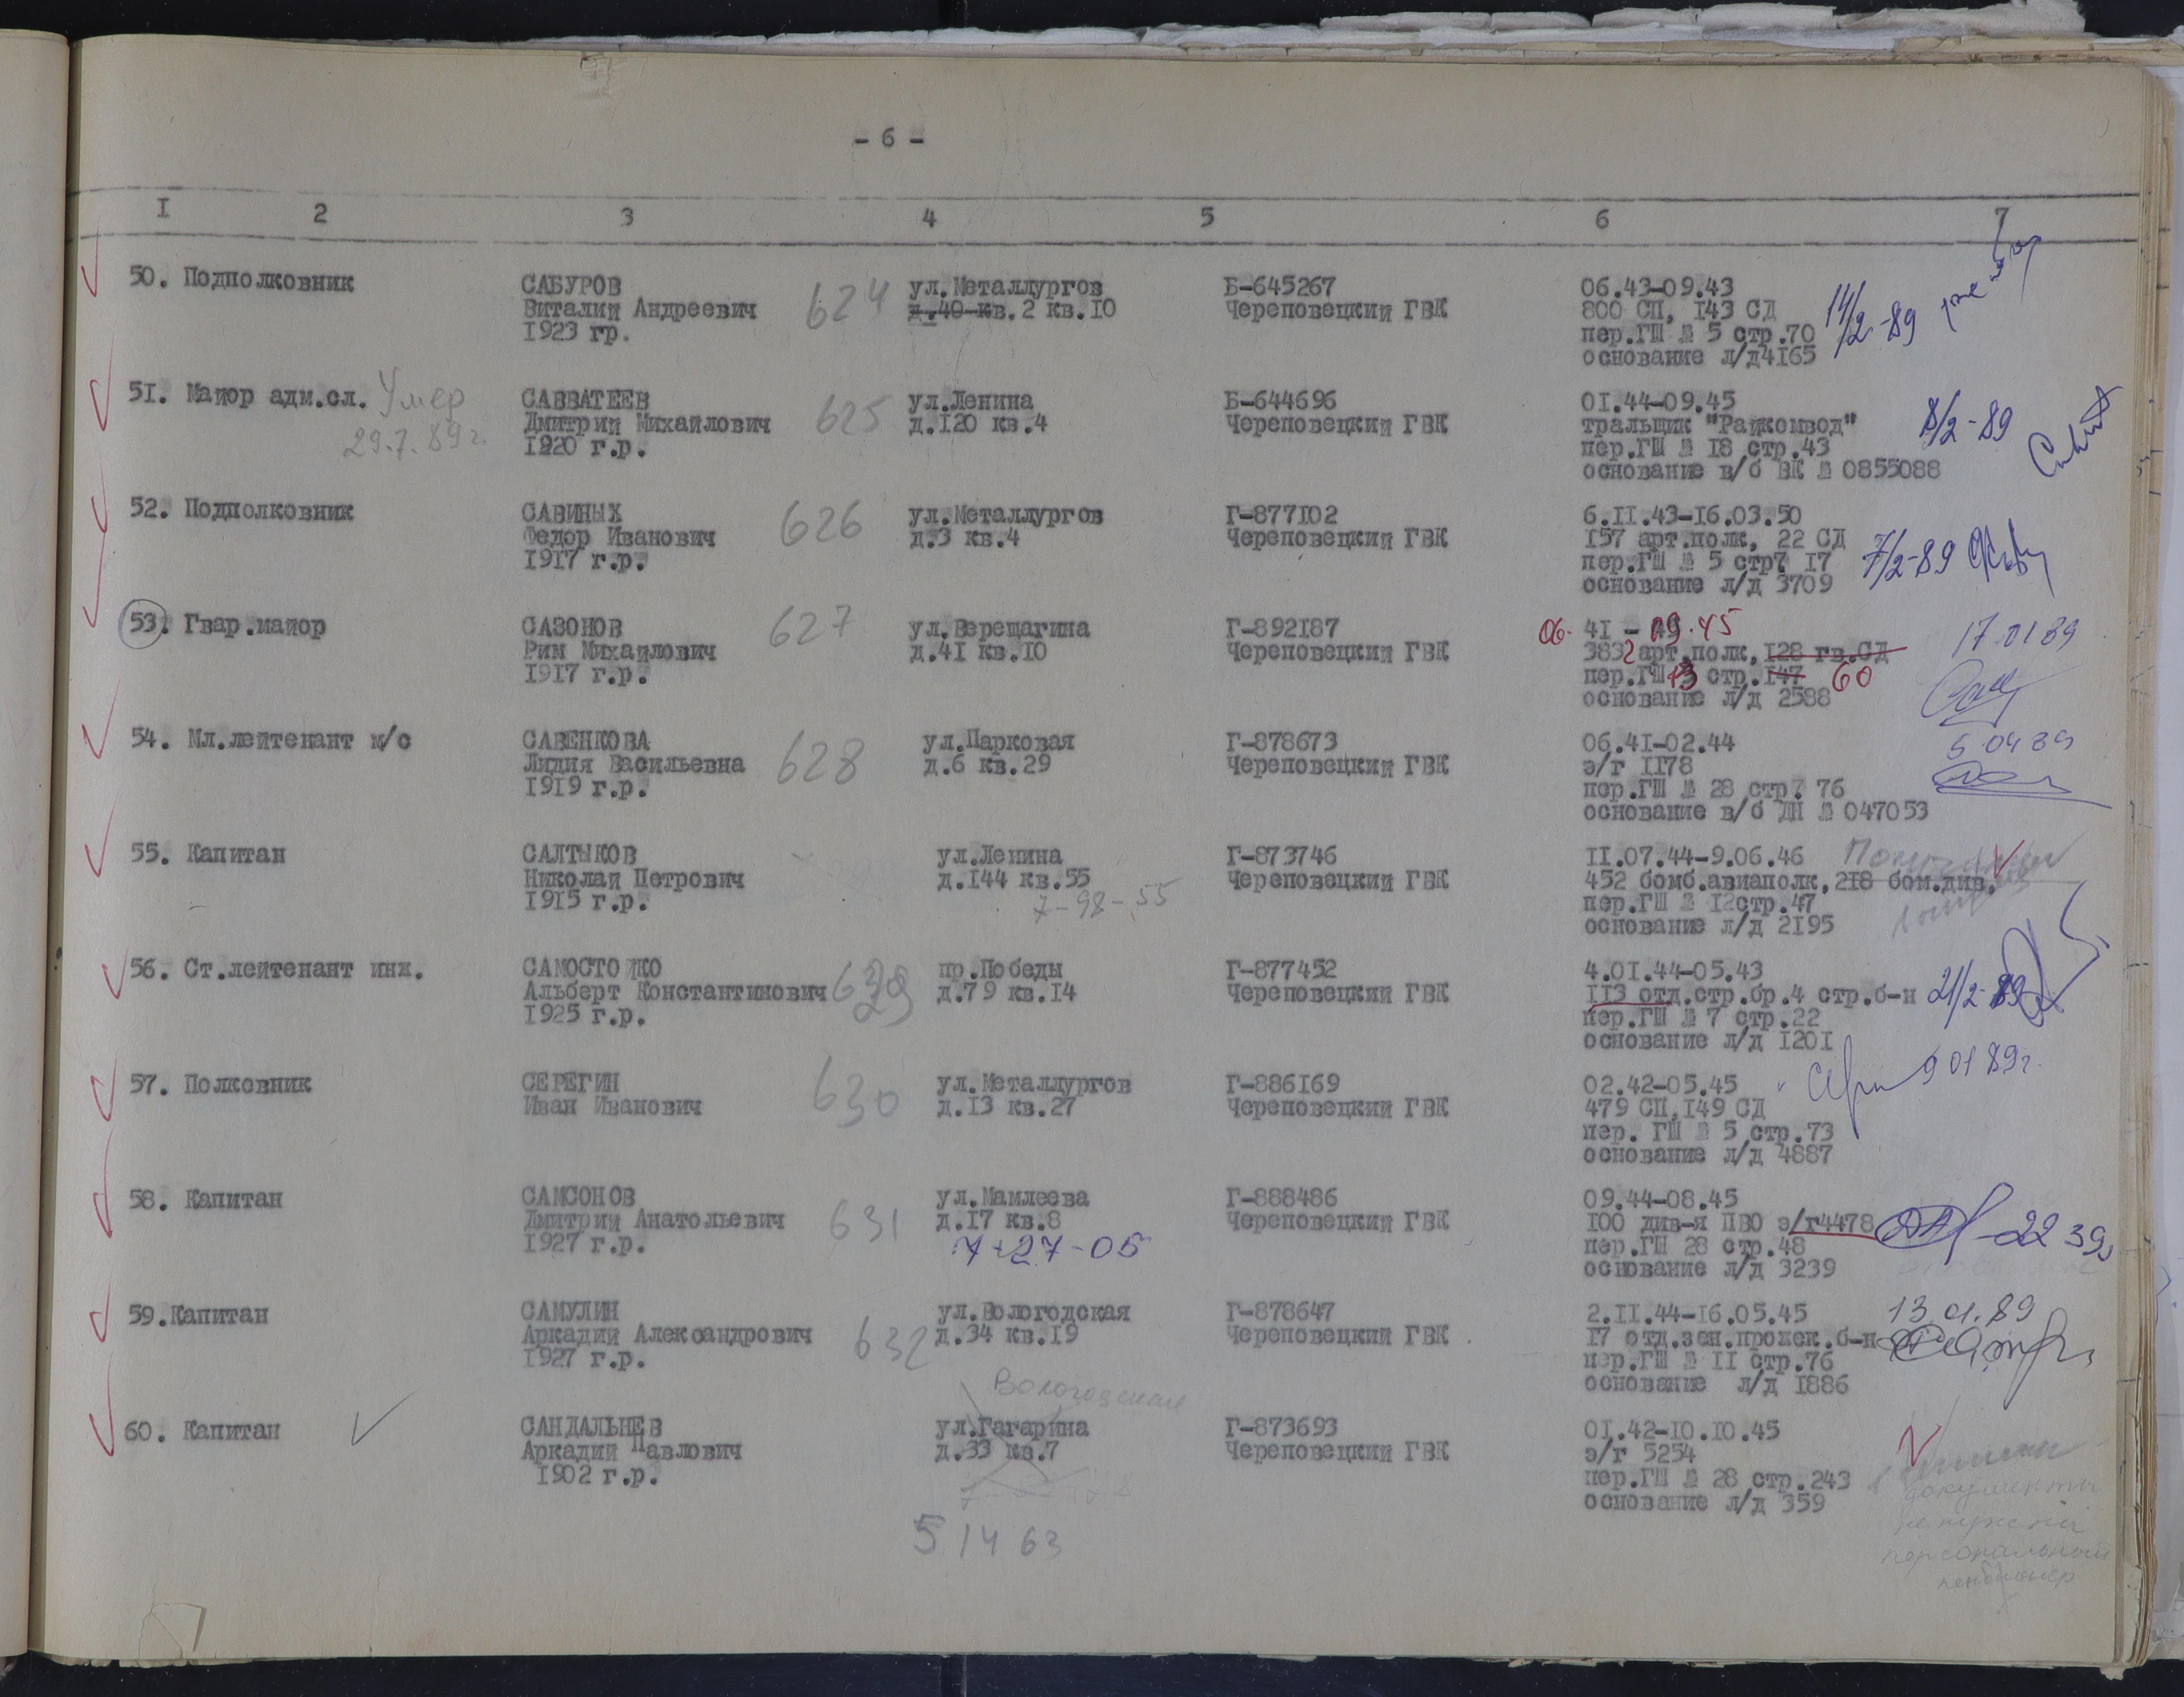 - 6 -
I 2 3 4 5 6 7
50. Подполковник САБУРОВ 624 ул.Металлургов Б-645267 06.43-09.43
Виталий Андреевич д.40 кв. 2 кв.10 Череповецкий ГВК 800 СП, 143 СД 14/2-89
1923 гр. пер.ГШ № 5 стр.70
основание л/д4165
51. Майор адм.сл. Умер САВВАТЕЕВ ул.Ленина Б-644696 01.44-09.45
29.7.89г. Дмитрий Михайлович 625 д.120 кв.4 Череповецкий ГВК тральщик "Райкомвод" 8/2-89
1920 г.р. пер.ГШ № 18 стр.43
основание в/б ВК № 0855088
52. Подполковник САВИНЫХ 626 ул.Металлургов Г-877102 6.11.43-16.03.50
Федор Иванович д.3 кв.4 Череповецкий ГВК 157 арт.полк, 22 СД 7/2-89
1917 г.р. пер.ГШ № 5 стр7 17
основание л/д 3709
53. Гвар.майор САЗОНОВ 627 ул.Верещагина Г-892187 06. 41 - 09.45 17.01 89
Рим Михайлович д.41 кв.10 Череповецкий ГВК 3832 арт.полк, 128 гв.СД
1917 г.р. пер.ГШ 13 стр.147 60
основание л/д 2588
54. Мл.лейтенант м/с САВЕНКОВА 628 ул.Парковая Г-878673 06.41-02.44 5 04 89
Лидия Васильевна д.6 кв.29 Череповецкий ГВК э/г 1178
1919 г.р. пер.ГШ № 28 стр7 76
основание в/б ДН № 047053
55. Капитан САЛТЫКОВ ул.Ленина Г-873746 11.07.44-9.06.46
Николай Петрович д.144 кв.55 Череповецкий ГВК 452 бомб.авиаполк,218 бом.див.
1915 г.р. 7-98-55 пер.ГШ № 12стр.47
основание л/д 2195
56. Ст.лейтенант инж. САМОСТОЙКО 629 пр.Победы Г-877452 4.01.44-05.43
Альберт Константинович д.79 кв.14 Череповецкий ГВК 113 отд.стр.бр.4 стр.б-н 21/2-89
1925 г.р. пер.ГШ № 7 стр.22
основание л/д 1201
57. Полковник СЕРЕГИН 630 ул.Металлургов Г-886169 02.42-05.45 9 01 89г.
Иван Иванович д.13 кв.27 Череповецкий ГВК 479 СП,149 СД
пер. ГШ № 5 стр.73
основание л/д 4887
58. Капитан САМСОНОВ ул.Мамлеева Г-888486 09.44-08.45
Дмитрий Анатольевич 631 д.17 кв.8 Череповецкий ГВК 100 див-я ПВО э/г4478
1927 г.р. 7-27-05 пер.ГШ 28 стр.48
основание л/д 3239
59.Капитан САМУЛИН ул.Вологодская Г-878647 2.11.44-16.05.45 13.01.89
Аркадий Александрович 632 д.34 кв.19 Череповецкий ГВК 17 отд.зен.прожек.б-н
1927 г.р. пер.ГШ № 11 стр.76
основание л/д 1886
Вологодская
60. Капитан САНДАЛЬНЕВ ул.Гагарина Г-873693 01.42-10.10.45
Аркадий Павлович д.33 кв.7 Череповецкий ГВК э/г 5254
1902 г.р. пер.ГШ № 28 стр.243
основание л/д 359
документы
персональный
пенсионер
5 14 63